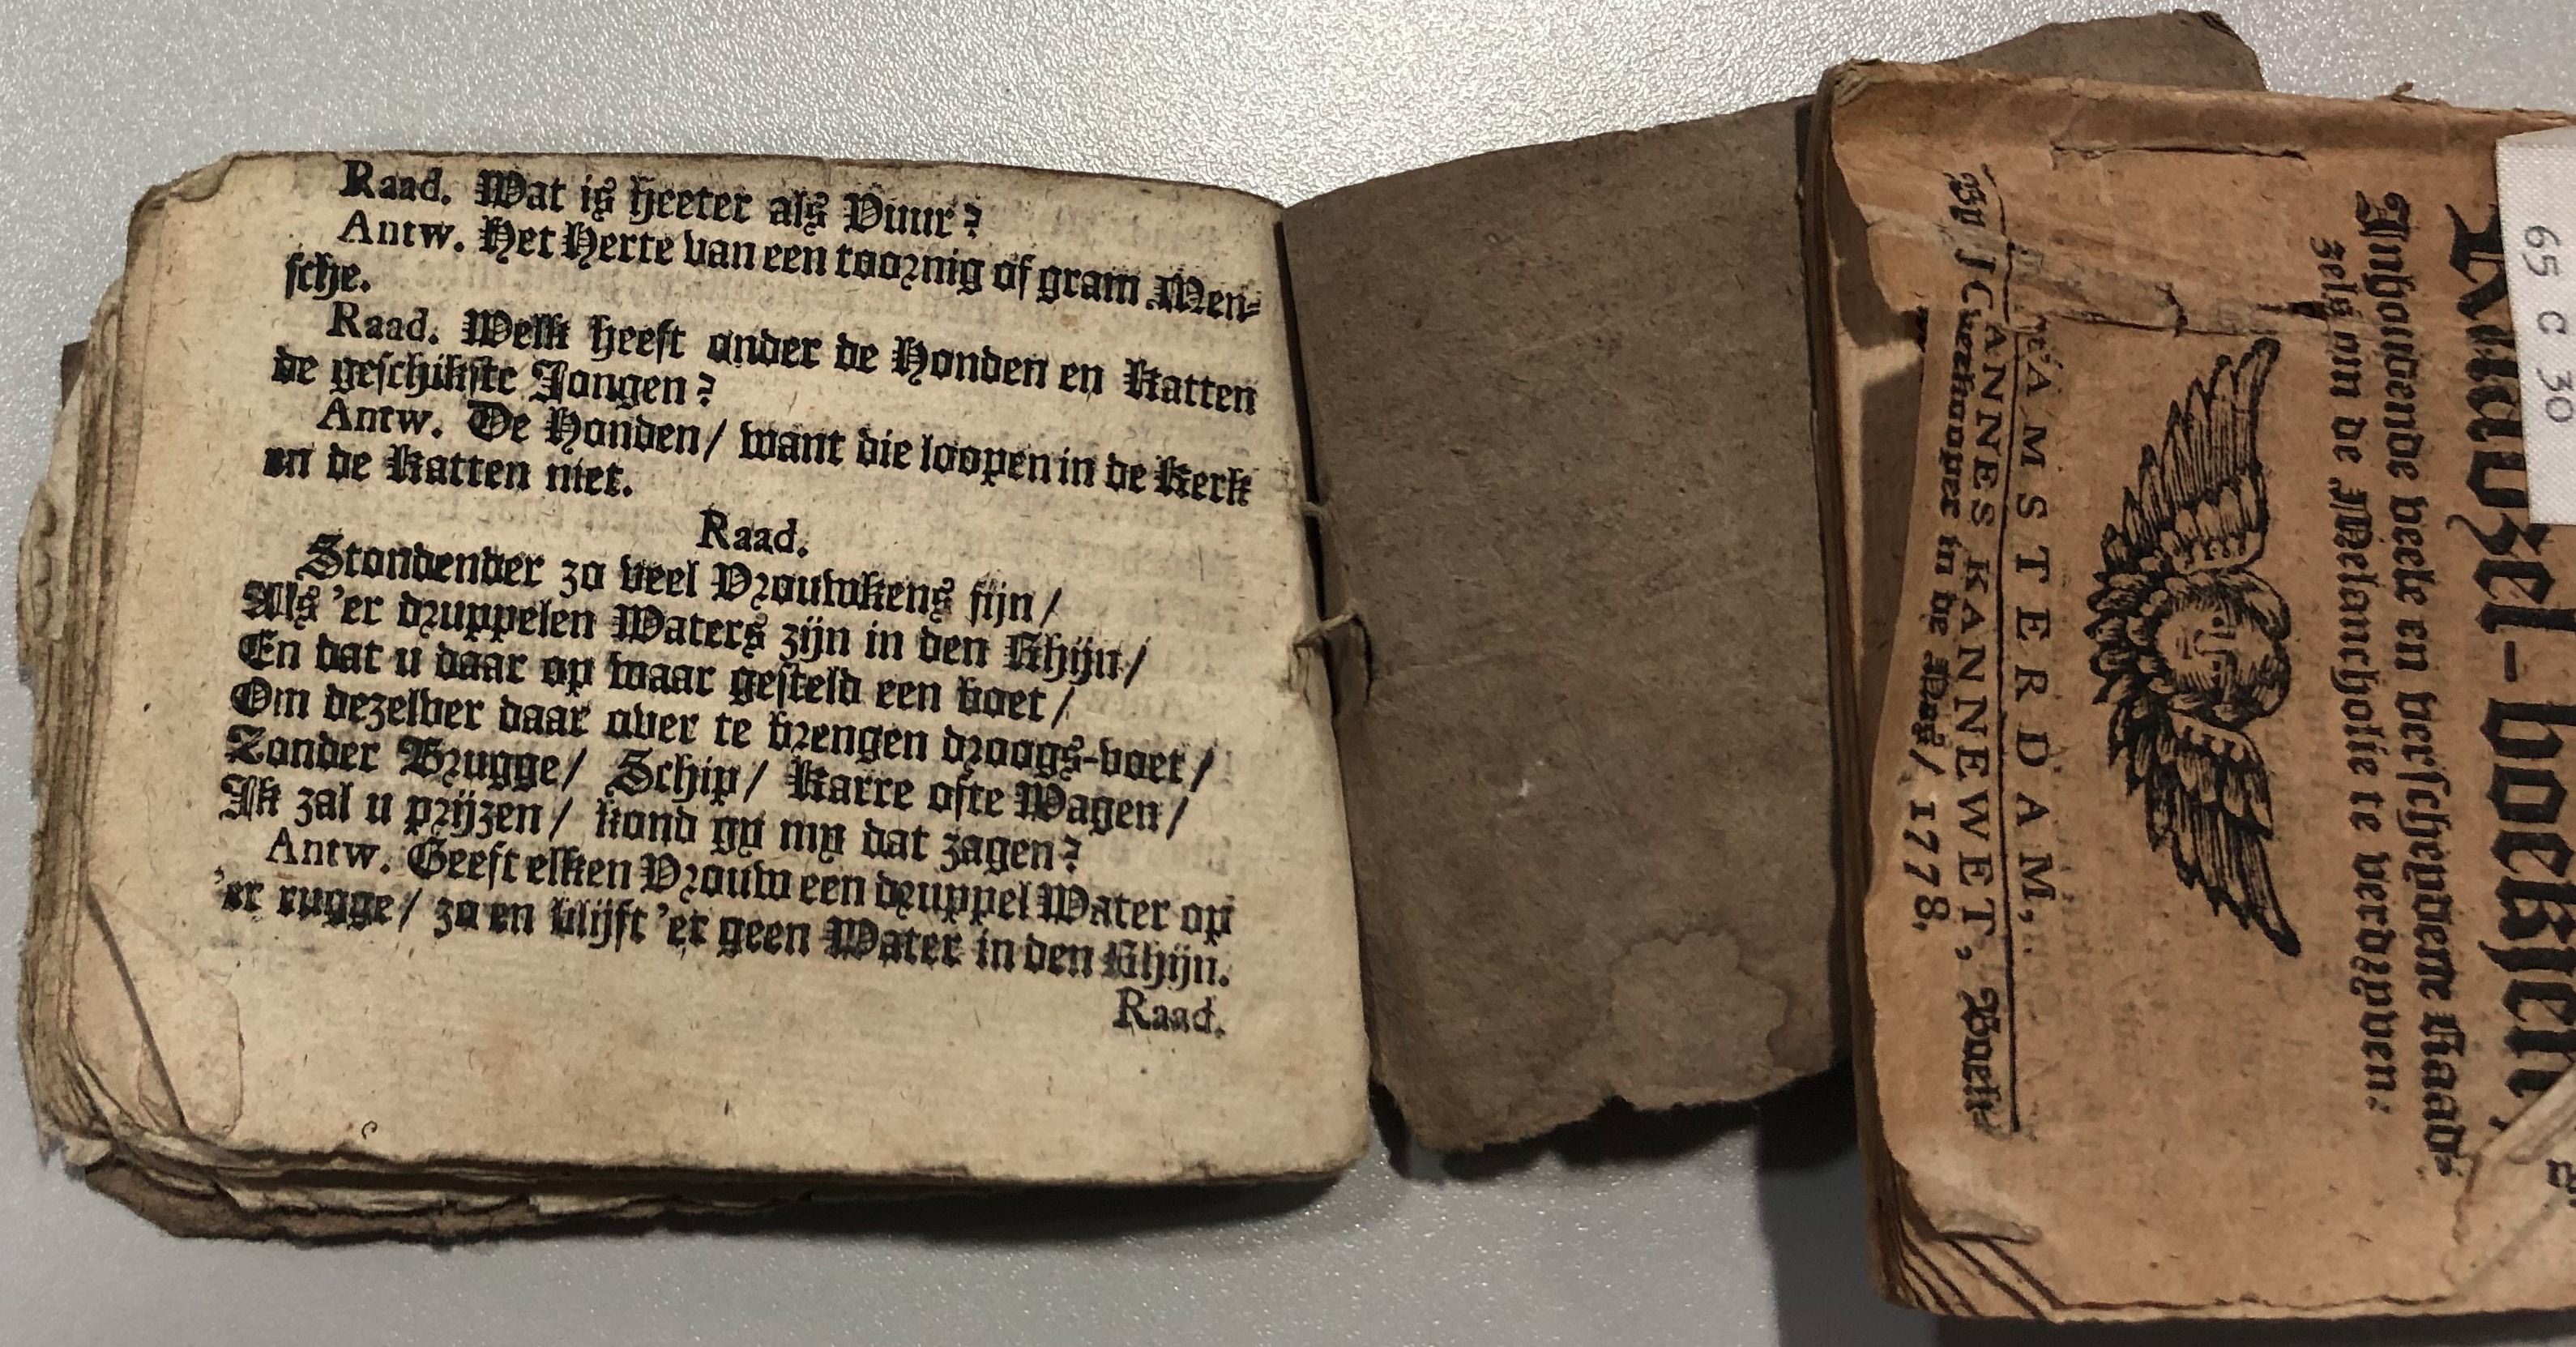 Raad. Wat is heeter als Vuur?
Antw. Het Herte van een toornig of gram Men-
sche.
Raad. Welk heeft onder de Honden en Katten
de geschikste Jongen?
Antw. De Honden/ want die loopen in de Kerk
en de Katten niet.
Raad.
Stondender zo veel Vrouwkens fijn/
Als 'er druppelen Waters zijn in den Rhijn/
En dat u daar op waar gesteld een boet/
Om dezelver daar over te brengen droogs-voet/
Zonder Brugge/ Schip/ Karre ofte Wagen/
Ik zal u prijzen/ kond gy my dat zagen?
Antw. Geeft elken Vrouw een druppel Water op
'er rugge/ zo en blijft 'er geen Water in den Rhijn.
Raad.
Raadzel-boekjen,
Inhoudende veele en verscheydene Raad-
zels om de Melancholie te verdryven.
t'AMSTERDAM,
By JOANNES KANNEWET, Boek-
verkooper in de Nes/ 1778.
65 C 30